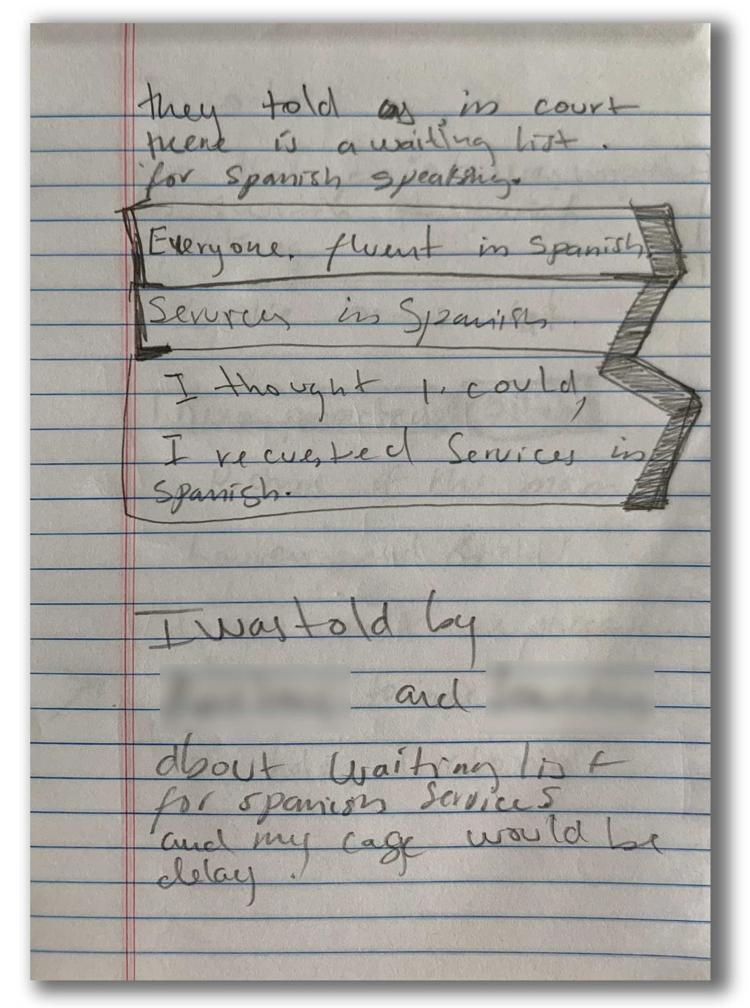 they told us in court
there is a waiting list.
for Spanish speaking.
Everyone. fluent in Spanish
Services in Spanish
I thought I. could,
I recuested Services in
Spanish.
I was told by
and
about waiting list
for spanish Services
and my case would be
delay.